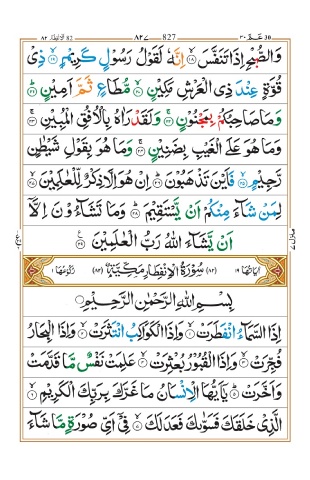 الانفطار ٨٢ ٨٢٧ 827 عمّ ٣٠
وَالصُّبْحِ اِذَا تَنَفَّسَ ۙ‏﴿۱۸﴾ اِنَّهٗ لَقَوْلُ رَسُوْلٍ كَرِيْمٍۙ‏﴿۱۹﴾ ذِىْ
قُوَّةٍ عِنْدَ ذِى الْعَرْشِ مَكِيْنٍۙ‏﴿۲۰﴾ مُّطَاعٍ ثَمَّ اَمِيْنٍؕ‏﴿۲۱﴾
وَمَا صَاحِبُكُمْ بِمَجْنُوْنٍۚ‏﴿۲۲﴾ وَلَقَدْ رَاٰهُ بِالْاُفُقِ الْمُبِيْنِۚ‏﴿۲۳﴾
وَمَا هُوَ عَلَى الْغَيْبِ بِضَنِيْنٍۚ‏﴿۲۴﴾ وَمَا هُوَ بِقَوْلِ شَيْطٰنٍ
رَّجِيْمٍۙ‏﴿۲۵﴾ فَاَيْنَ تَذْهَبُوْنَؕ‏﴿۲۶﴾ اِنْ هُوَ اِلَّا ذِكْرٌ لِّلْعٰلَمِيْنَۙ‏﴿۲۷﴾
لِمَنْ شَآءَ مِنْكُمْ اَنْ يَّسْتَقِيْمَؕ‏﴿۲۸﴾ وَمَا تَشَآءُوْنَ اِلَّاۤ
اَنْ يَّشَآءَ اللّٰهُ رَبُّ الْعٰلَمِيْنَ‏﴿۲۹﴾
اٰيَاتُهَا ١٩ (٨٢) سُوْرَةُ الْاِنْفِطَارِ مَكِّيَّةٌ (٨٢) رُكُوْعُهَا ١
بِسْمِ اللّٰهِ الرَّحْمٰنِ الرَّحِيْمِ
اِذَا السَّمَآءُ انْفَطَرَتْۙ‏﴿۱﴾ وَاِذَا الْكَوَاكِبُ انْتَثَرَتْۙ‏﴿۲﴾ وَاِذَا الْبِحَارُ
فُجِّرَتْۙ‏﴿۳﴾ وَاِذَا الْقُبُوْرُ بُعْثِرَتْۙ‏﴿۴﴾ عَلِمَتْ نَفْسٌ مَّا قَدَّمَتْ
وَاَخَّرَتْؕ‏﴿۵﴾ يٰۤاَيُّهَا الْاِنْسَانُ مَا غَرَّكَ بِرَبِّكَ الْكَرِيْمِۙ‏﴿۶﴾
الَّذِىْ خَلَقَكَ فَسَوّٰٮكَ فَعَدَلَكَۙ‏﴿۷﴾ فِىْۤ اَىِّ صُوْرَةٍ مَّا شَآءَ